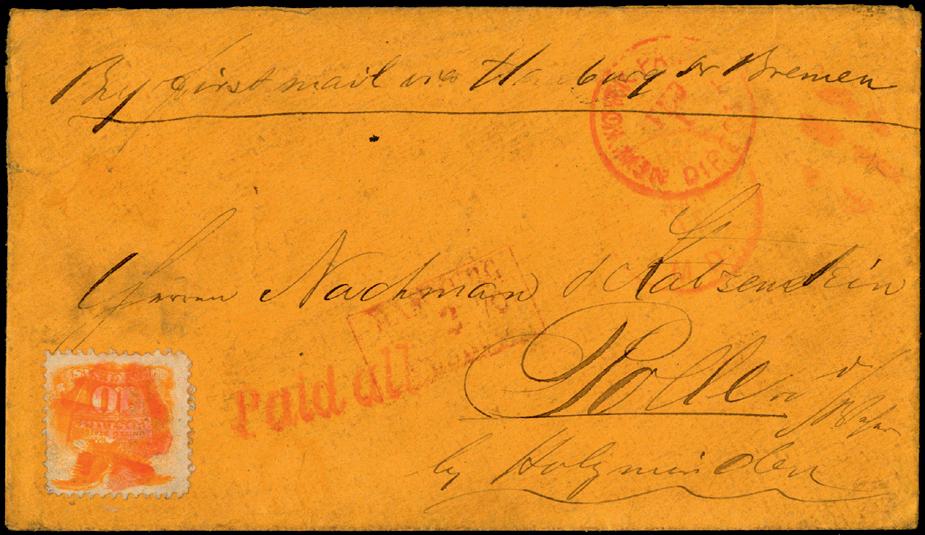 By first mail via Hamburg or Bremen
NEW YORK
DIRECT
Herren Nachman & Katzenstein
HAMBURG
Paid all
10
Polle
a/ Weser
by Holzminden